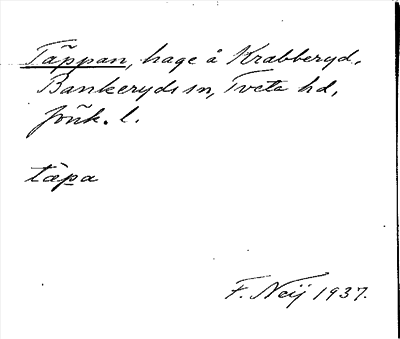 Täppan, hage å Krabberyd,
Bankeryds sn, Tveta hd,
Jönk. l.
täpa
F. Neij 1937.